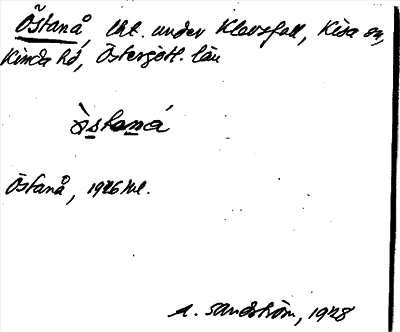 Östanå, lht. under Klevsfall, Kisa sn,
Kinda hd, Östergötl. län
östaná
Östanå, 1926 Jel.
A. Sandström, 1928